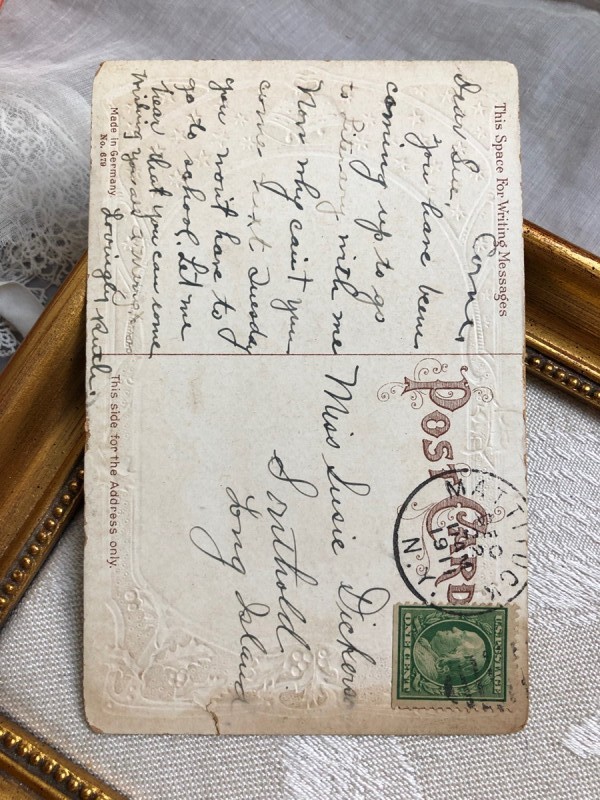 This Space For Writing Messages
Dear Sue,
You have been
coming up to go
to Literary with me
Now why can't you
come next Tuesday
you won't have to
go to school. Let me
hear that you can come
Lovingly Ruth.
Made in Germany
No. 679
POST CARD
MATTITUCK
DEC
22
AM
1911
N.Y.
U.S. POSTAGE
ONE CENT
Miss Susie
Southold
Long Island
This side for the Address only.